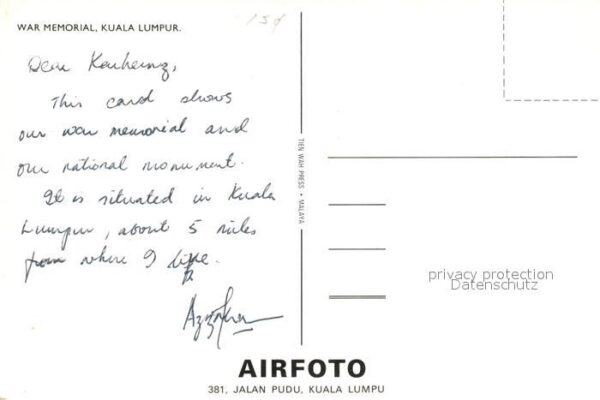 WAR MEMORIAL, KUALA LUMPUR.
15¢
Dear Karheinz,
This card shows
our war memorial and
our national monument.
It is situated in Kuala
Lumpur, about 5 miles
from where I live.
TIEN WAH PRESS • MALAYA
privacy protection
Datenschutz
AIRFOTO
381, JALAN PUDU, KUALA LUMPU